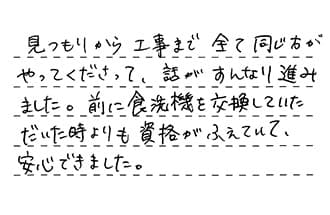 見つもりから工事まで全て同じ方が
やってくださって、話がすんなり進み
ました。前に食洗機を交換していた
だいた時よりも資格がふえていて、
安心できました。